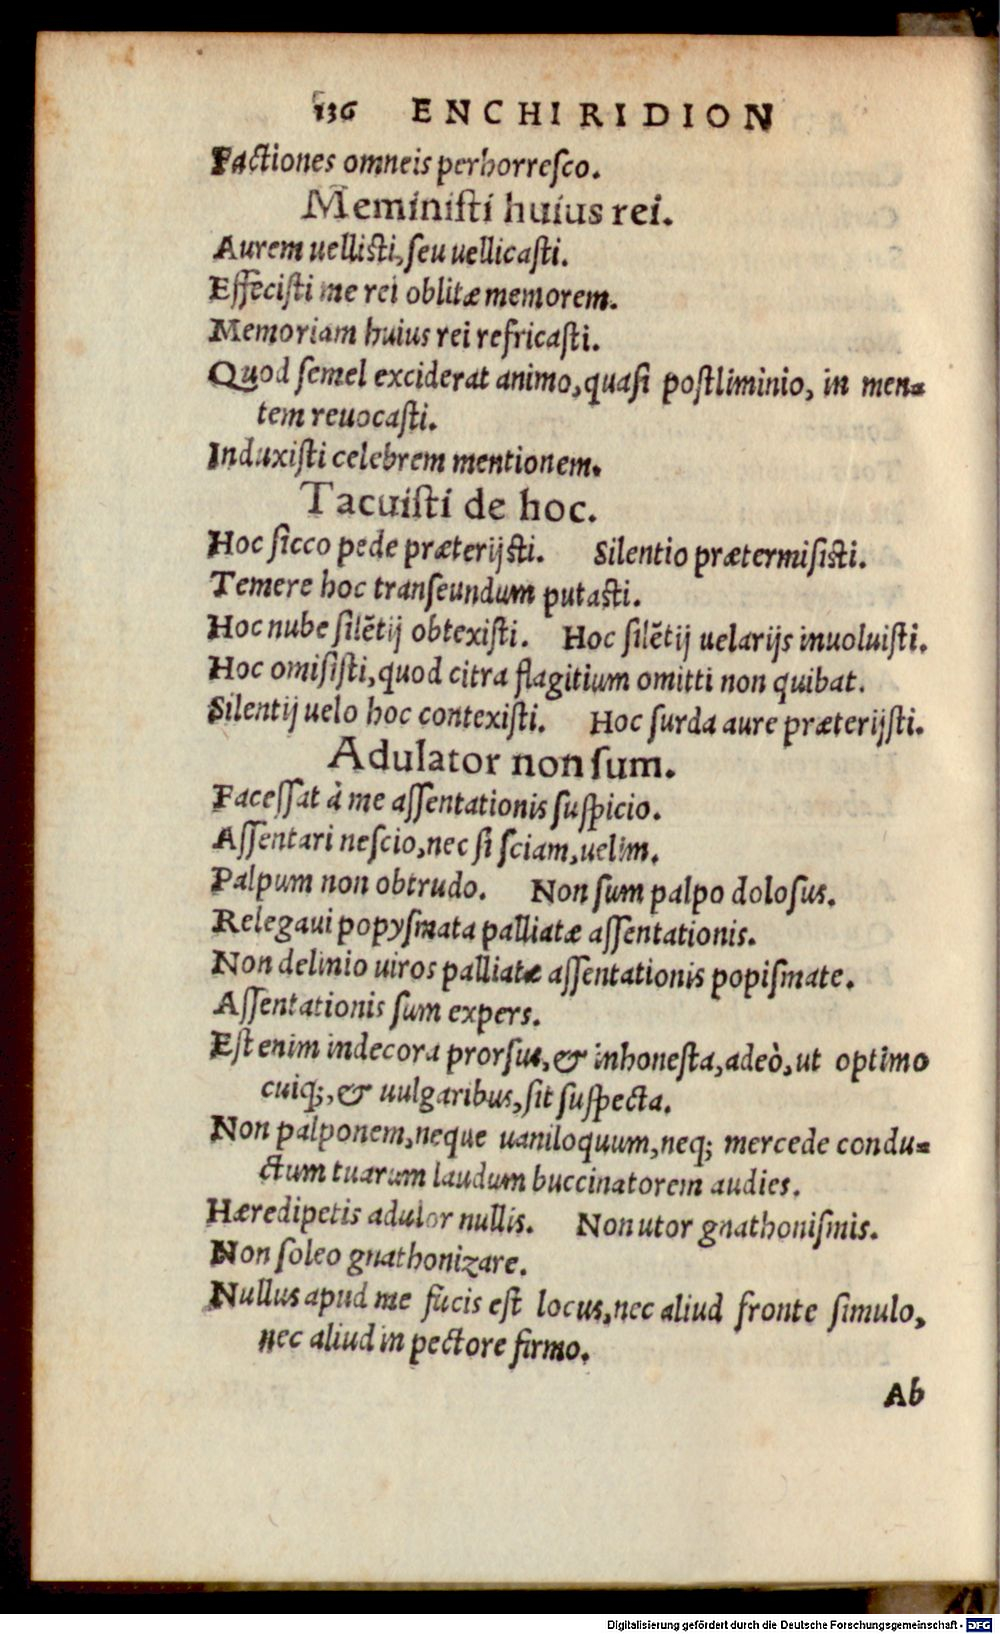 136 ENCHIRIDION
Factiones omneis perhorreſco.
Meminiſti huius rei.
Aurem uelliſti, ſeu uellicaſti.
Effeciſti me rei oblitæ memorem.
Memoriam huius rei refricaſti.
Quod ſemel exciderat animo, quaſi poſtliminio, in men-
tem reuocaſti.
Induxiſti celebrem mentionem.
Tacuiſti de hoc.
Hoc ſicco pede præterijſti. Silentio prætermiſiſti.
Temere hoc tranſeundum putaſti.
Hoc nube ſilẽtij obtexiſti. Hoc ſilẽtij uelarijs inuoluiſti.
Hoc omiſiſti, quod citra flagitium omitti non quibat.
Silentij uelo hoc contexiſti. Hoc ſurda aure præterijſti.
Adulator non ſum.
Faceſſat à me aſſentationis ſuſpicio.
Aſſentari neſcio, nec ſi ſciam, uelim.
Palpum non obtrudo. Non ſum palpo doloſus.
Relegaui popyſmata palliatæ aſſentationis.
Non delinio uiros palliatæ aſſentationis popiſmate.
Aſſentationis ſum expers.
Eſt enim indecora prorſus, & inhoneſta, adeò, ut optimo
cuiq;, & uulgaribus, ſit ſuſpecta.
Non palponem, neque uaniloquum, neq; mercede condu-
ctum tuarum laudum buccinatorem audies.
Hæredipetis adulor nullis. Non utor gnathoniſmis.
Non ſoleo gnathonizare.
Nullus apud me fucis eſt locus, nec aliud fronte ſimulo,
nec aliud in pectore firmo.
Ab
Digitalisierung gefördert durch die Deutsche Forschungsgemeinschaft - DFG